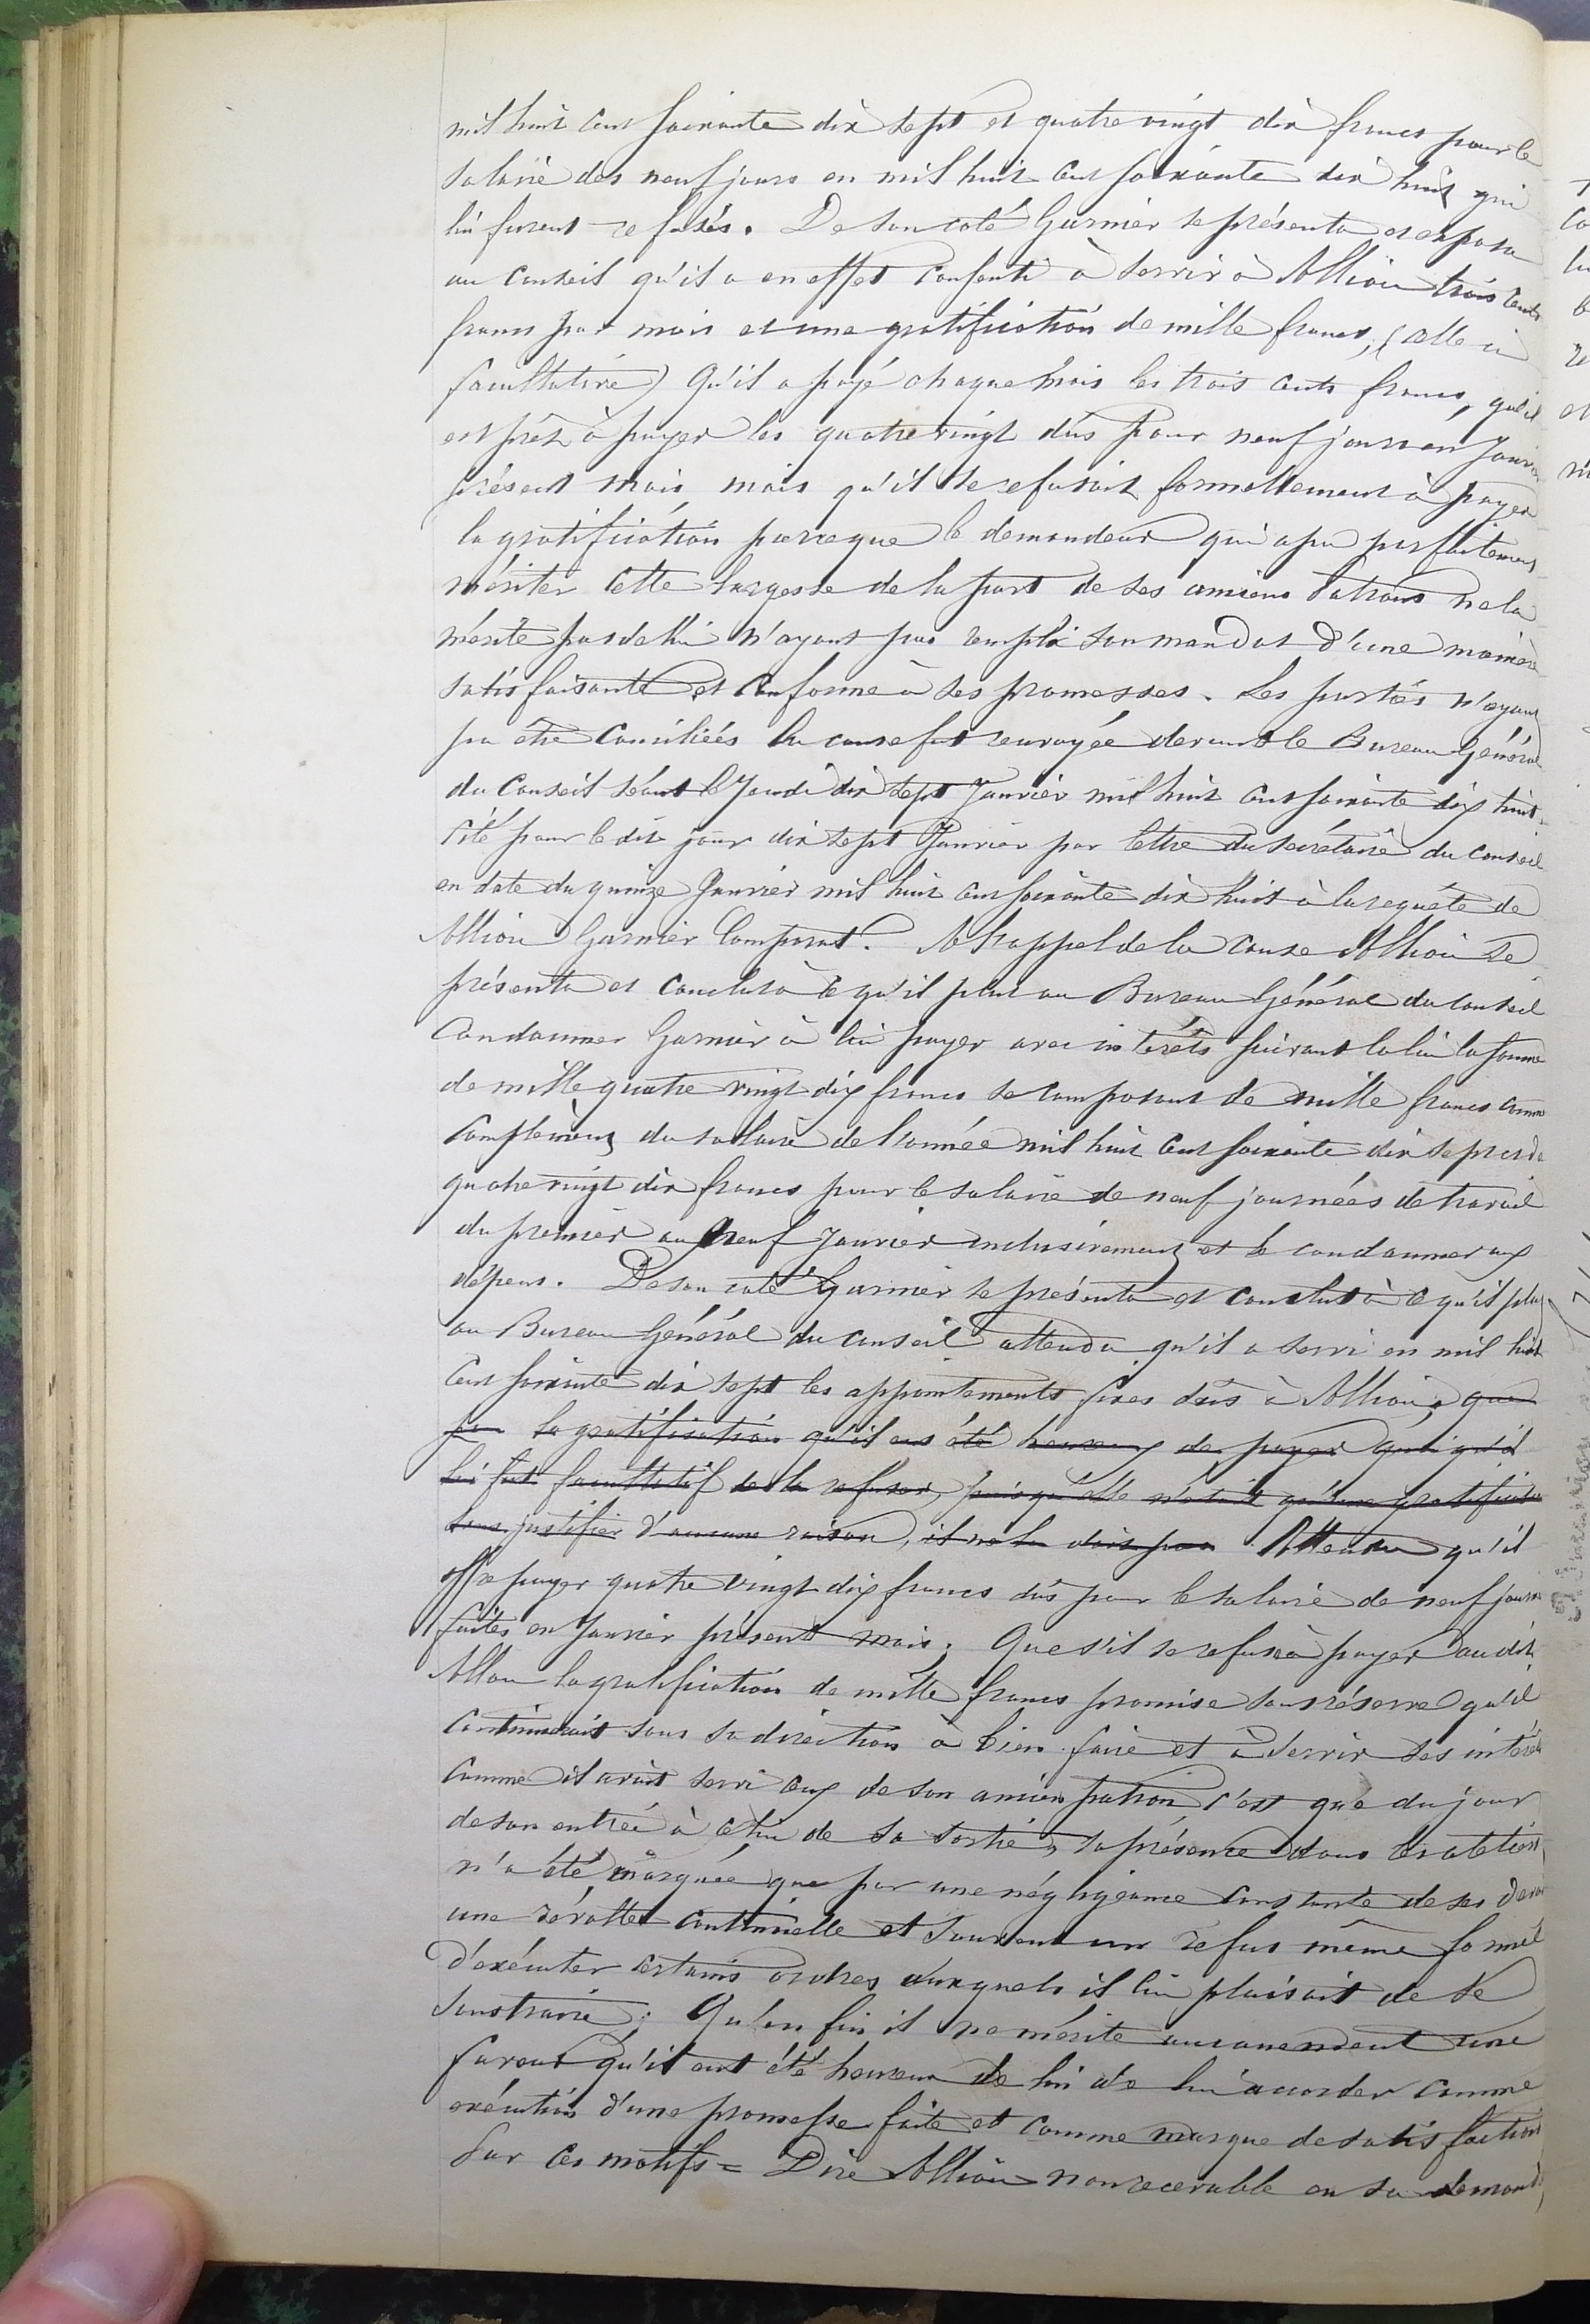 mil huit cent soixante dix sept et quatre vingt dix francs pour le
salaire des neuf jours en mil huit cent soixante dix huit qui
lui furent refusés. De son coté Garnier se présenta et exposa
au Conseil qu'il a en effet consenti à servir à Allion trois cents
francs par mois et une gratification de mille francs, (celle ci
facultative) Qu'il a payé chaque mois les trois cents francs, qu'il
est prêt à payer les quatre vingt dûs pour neuf jours en Janvier
présent mois mais qu'il se refusait formellement à payer
la gratification parceque le demandeur qui a pu parfaitement
mériter cette largesse de la part de ses anciens Patrons ne la
mérite pas de lui n'ayant pas rempli son mandat d'une manière
satisfaisante et conforme à ses promesses. Les parties n'ayant
pu être conciliées la cause fut renvoyée devant le Bureau Général
du Conseil séant le Jeudi dix sept Janvier mil huit cent soixante dix huit.
Cité pour le dit jour dix sept Janvier par lettre du secrétaire du Conseil
en date du quinze Janvier mil huit cent soixante dix huit à la requête de
Allion Garnier comparut. A l'appel de la cause Allion se
présenta et conclut à ce qu'il plut au Bureau Général du Conseil
Condamner Garnier à lui payer avec intérêts suivant la loi la somme
de mille quatre vingt dix francs se composant de mille francs comme
complément du salaire de l'année mil huit cent soixante dix sept et de
quatre vingt dix francs pour le salaire de neuf journées de travail
du premier au neuf Janvier inclusivement et le condamner aux
dépens. De son coté Garnier se présenta et conclut à ce qu'il plut
au Bureau Général du Conseil attendu qu'il a servi en mil huit
cent soixante dix sept les appointements fixes dûs à Allion, que
la gratification qu'il eut été heureux de payer quoiqu'il
lui fut facultatif de la refuser, puisqu'elle n'était qu'une gratification
sans justifier d'aucune raison, il ne la doit pas Attendu qu'il
offre payer quatre vingt dix francs dûs pour le salaire de neuf jours
faites en Janvier présent mois. Que s'il se refuse à payer audit
Allion la gratification de mille francs promise sous réserve qu'il
continuerait sous sa direction à bien faire et à servir ses intérêts
comme il avait servi ceux de son ancien patron c'est que du jour
de son entrée à celui de sa sortie, sa présence dans l'atelier
n'a été marquée que par une négligeance constante de ses devoirs
une révolte continuelle et souvent un refus même formel
d'exécuter certains ordres auxquels il lui plaisait de se
soustraire; Qu'en fin il ne mérite aucunement une
faveur qu'il eut été heureux de lui de lui accorder comme
exécution d'une promesse faite et comme marque de satisfaction
Sur ces motifs = Dire Allion non recevable en sa demande